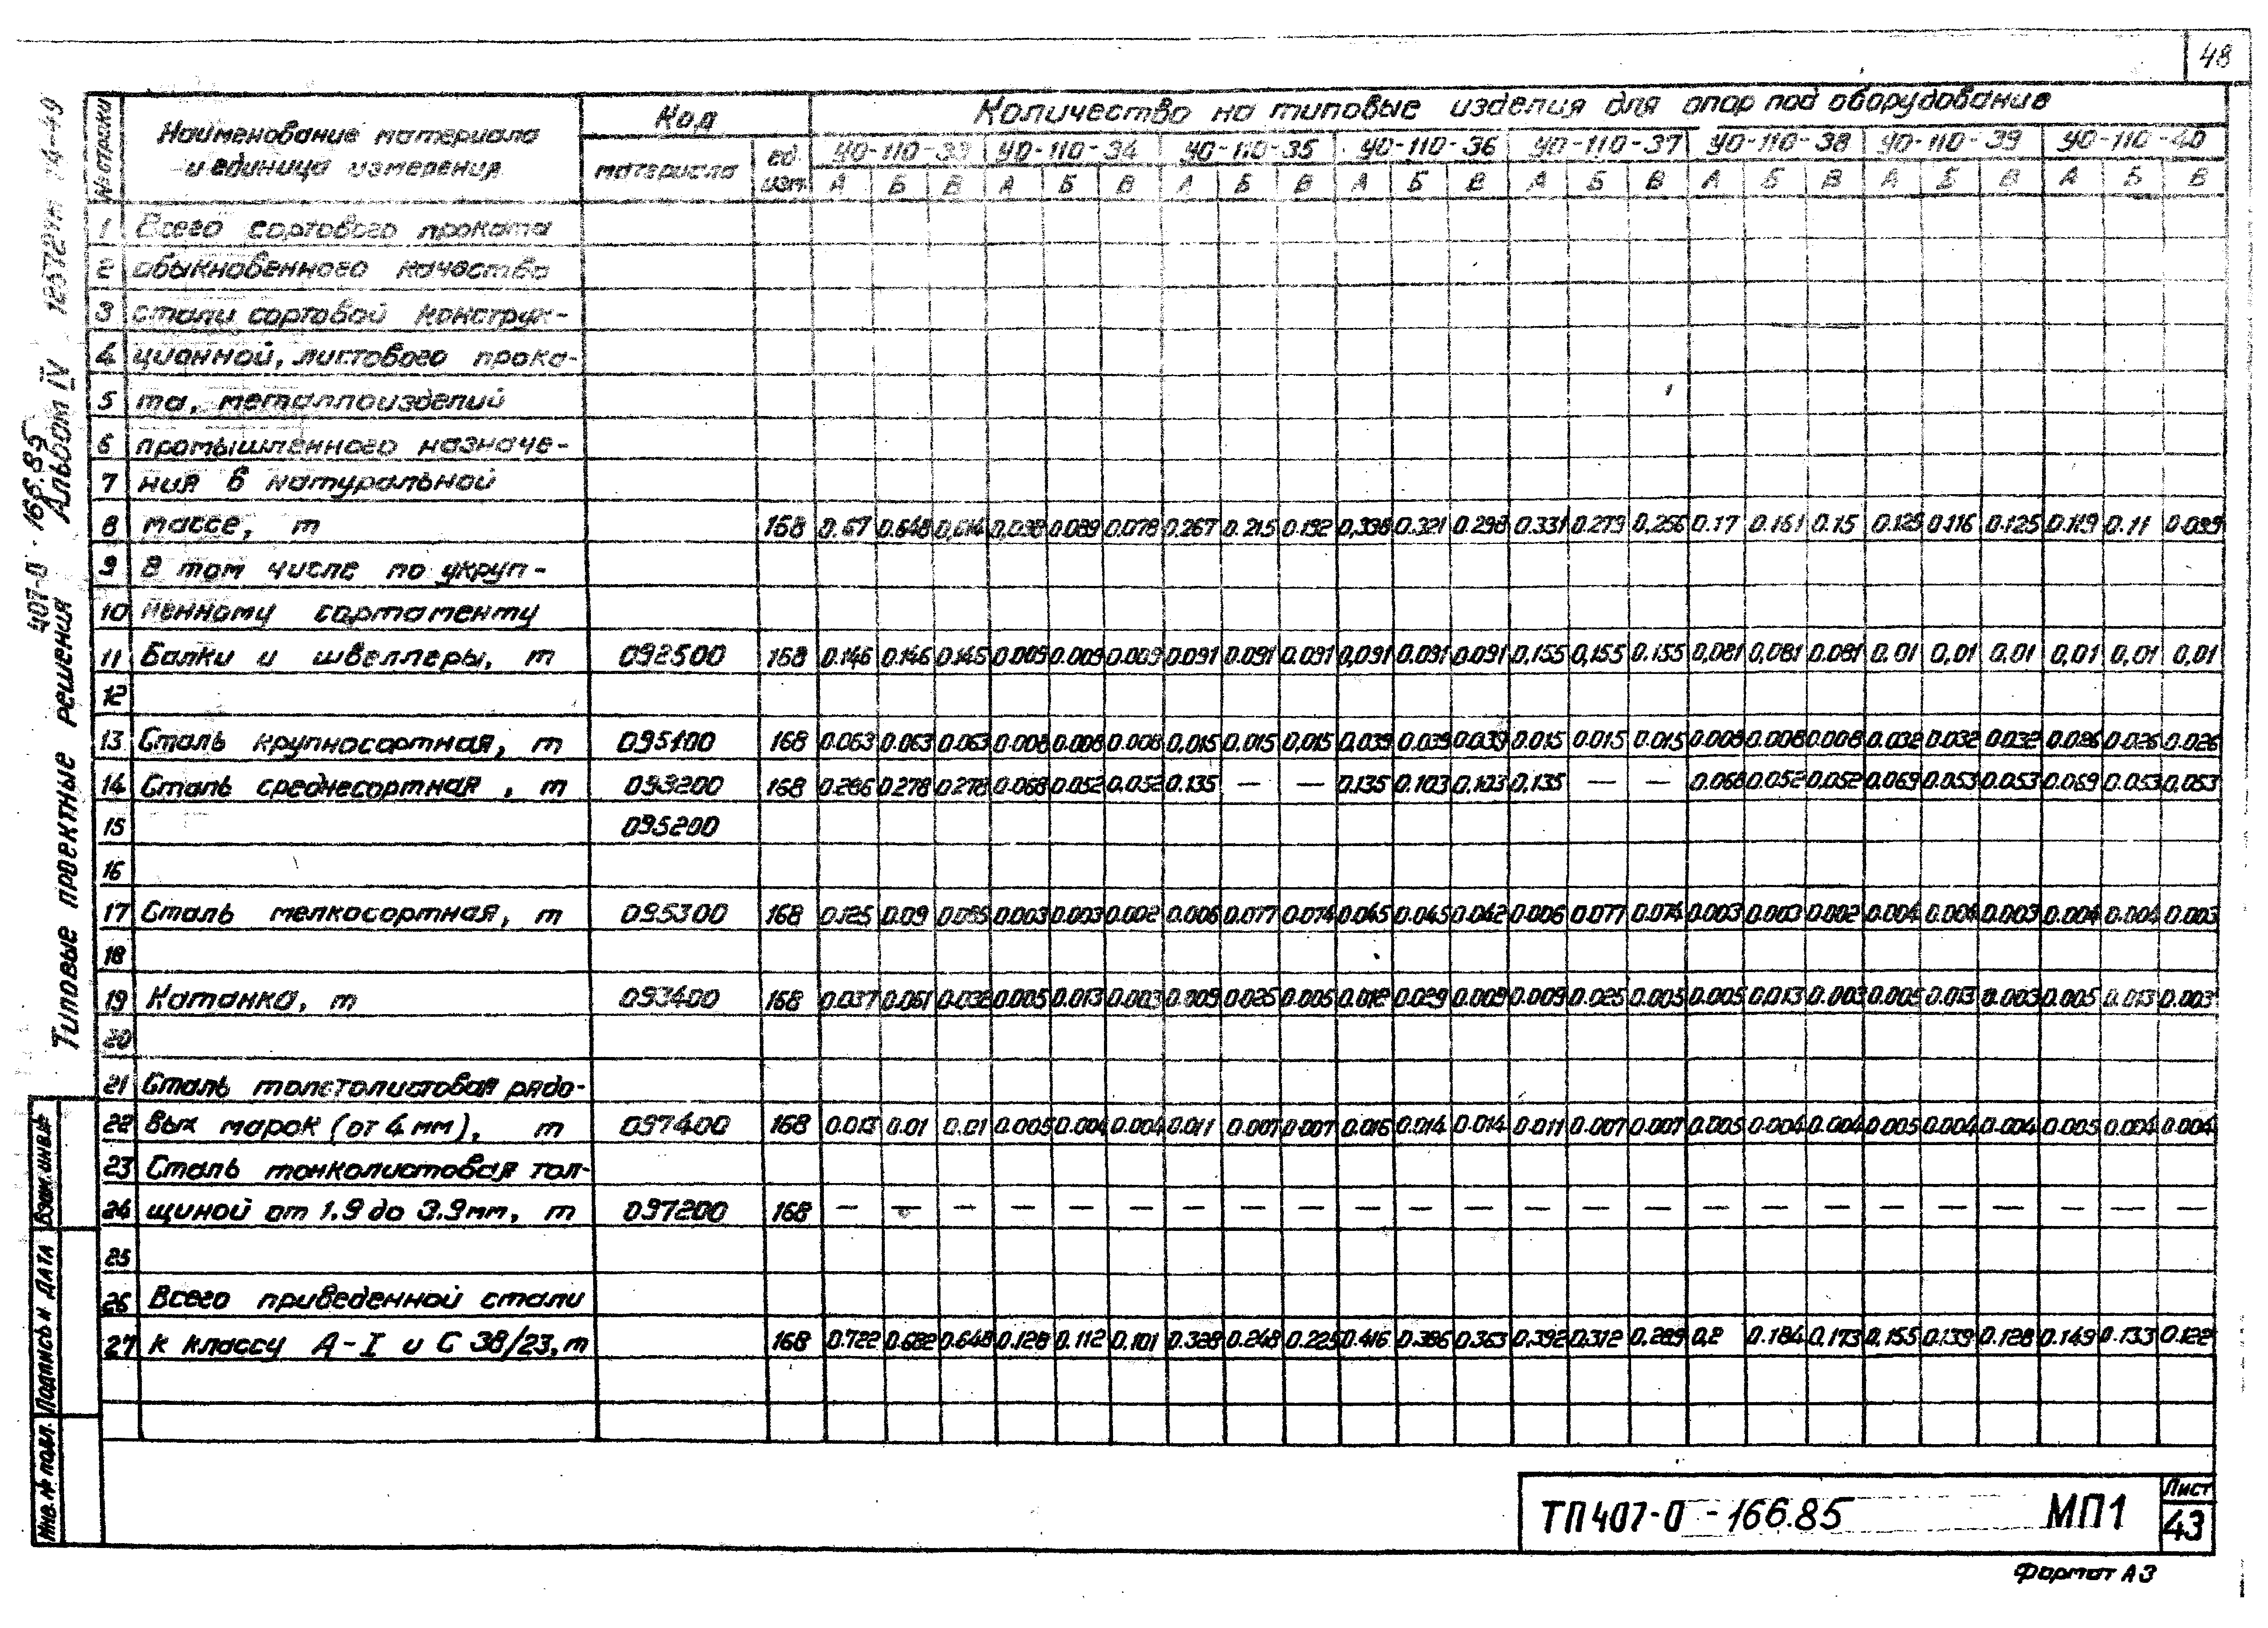 48
№ строки
Наименование материала
и единица измерения
Код
материала
ед. изм.
Количество на типовые изделия для опор под оборудование
УО-110-33 УО-110-34 УО-110-35 УО-110-36 УО-110-37 УО-110-38 УО-110-39 УО-110-40
А Б В А Б В А Б В А Б В А Б В А Б В А Б В А Б В
1 Всего сортового проката
2 обыкновенного качества
3 стали сортовой конструк-
4 ционной, листового прока-
5 та, металлоизделий
6 промышленного назначе-
7 ния в натуральной
8 массе, т 168 0.67 0.648 0,614 0,098 0.089 0.078 0.267 0.215 0.192 0,338 0.321 0.298 0.331 0.279 0,256 0.17 0.161 0.15 0.129 0.116 0.125 0.119 0.11 0.099
9 В том числе по укруп-
10 ненному сортаменту
11 Балки и швеллеры, т 092500 168 0.146 0.146 0.146 0.009 0.009 0.009 0.091 0.091 0.091 0,091 0.091 0.091 0,155 0,155 0.155 0,081 0,081 0.081 0.01 0,01 0.01 0,01 0,01 0,01
12
13 Сталь крупносортная, т 095100 168 0.063 0.063 0.063 0.008 0.008 0.008 0,015 0.015 0,015 0,039 0.039 0.039 0.015 0.015 0.015 0.008 0.008 0.008 0.032 0.032 0.032 0.026 0.026 0.026
14 Сталь среднесортная, т 093200 168 0.286 0.278 0.278 0.068 0.052 0,052 0.135 — — 0.135 0.103 0.103 0,135 — — 0.068 0.052 0.052 0,069 0.053 0.053 0.069 0.053 0,053
15 095200
16
17 Сталь мелкосортная, т 095300 168 0.125 0.09 0.085 0.003 0.003 0.002 0.006 0.077 0.074 0.045 0.045 0.042 0.006 0.077 0.074 0.003 0.003 0.002 0.004 0.004 0.003 0.004 0.004 0.003
18
19 Катанка, т 093400 168 0.037 0.061 0.032 0.005 0.013 0.003 0.009 0.025 0.005 0.012 0.029 0.009 0.009 0.025 0.005 0.005 0.013 0.003 0.005 0.013 0.003 0.005 0.013 0.003
20
21 Сталь толстолистовая рядо-
22 вых марок (от 4 мм), т 097400 168 0.013 0.01 0.01 0.005 0.004 0.004 0.011 0.007 0.007 0.016 0.014 0.014 0.011 0.007 0.007 0.005 0.004 0.004 0.005 0.004 0.004 0.005 0.004 0.004
23 Сталь тонколистовая тол-
24 щиной от 1.9 до 3.9 мм, т 097200 168 — — — — — — — — — — — — — — — — — — — — — — — —
25
26 Всего приведенной стали
27 к классу А-I и С 38/23, т 168 0.722 0.682 0.648 0.128 0.112 0,101 0.328 0.248 0.225 0.416 0.386 0.363 0,392 0.312 0,289 0,2 0.184 0,173 0,155 0.139 0.128 0.149 0.133 0.122
407-0-166.85
Альбом IV
Типовые проектные решения
Взам. инв. №
Подпись и дата
Инв. № подл.
ТП 407-0-166.85 МП1
Лист
43
Формат А3